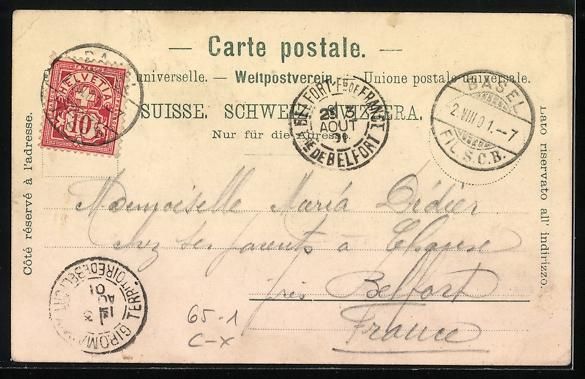 Carte postale.
universelle. — Weltpostverein. — Unione postale universale.
SUISSE. SCHWEIZ. SVIZZERA.
Nur für die Adresse.
Côté réservé à l'adresse.
Lato riservato all' indirizzo.
HELVETIA
10
BASEL
2.VIII.01.-7
FIL. S.C.B.
AOUT
RE DE BELFORT
TERRITOIRE DE BELFORT
GIROMA
AOUT
01
Mademoiselle Maria Didier
chez ses parents à
près Belfort
France
65-1
C-X